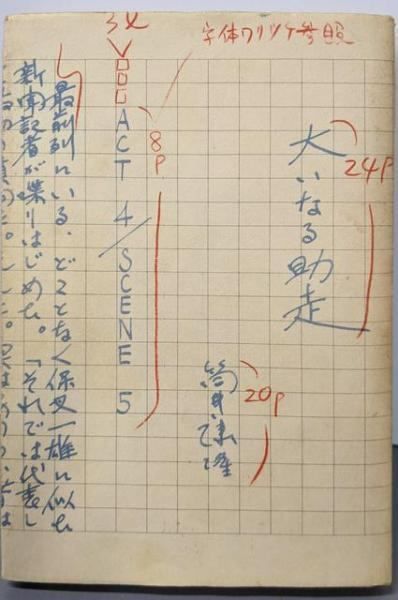 字体ワリツケ参照
大いなる助走
24P
筒井康隆
20P
ACT 4/SCENE 5
8P
最前列にいる、どことなく保又一雄に似た
新聞記者が喋りはじめた。「それでは代表し